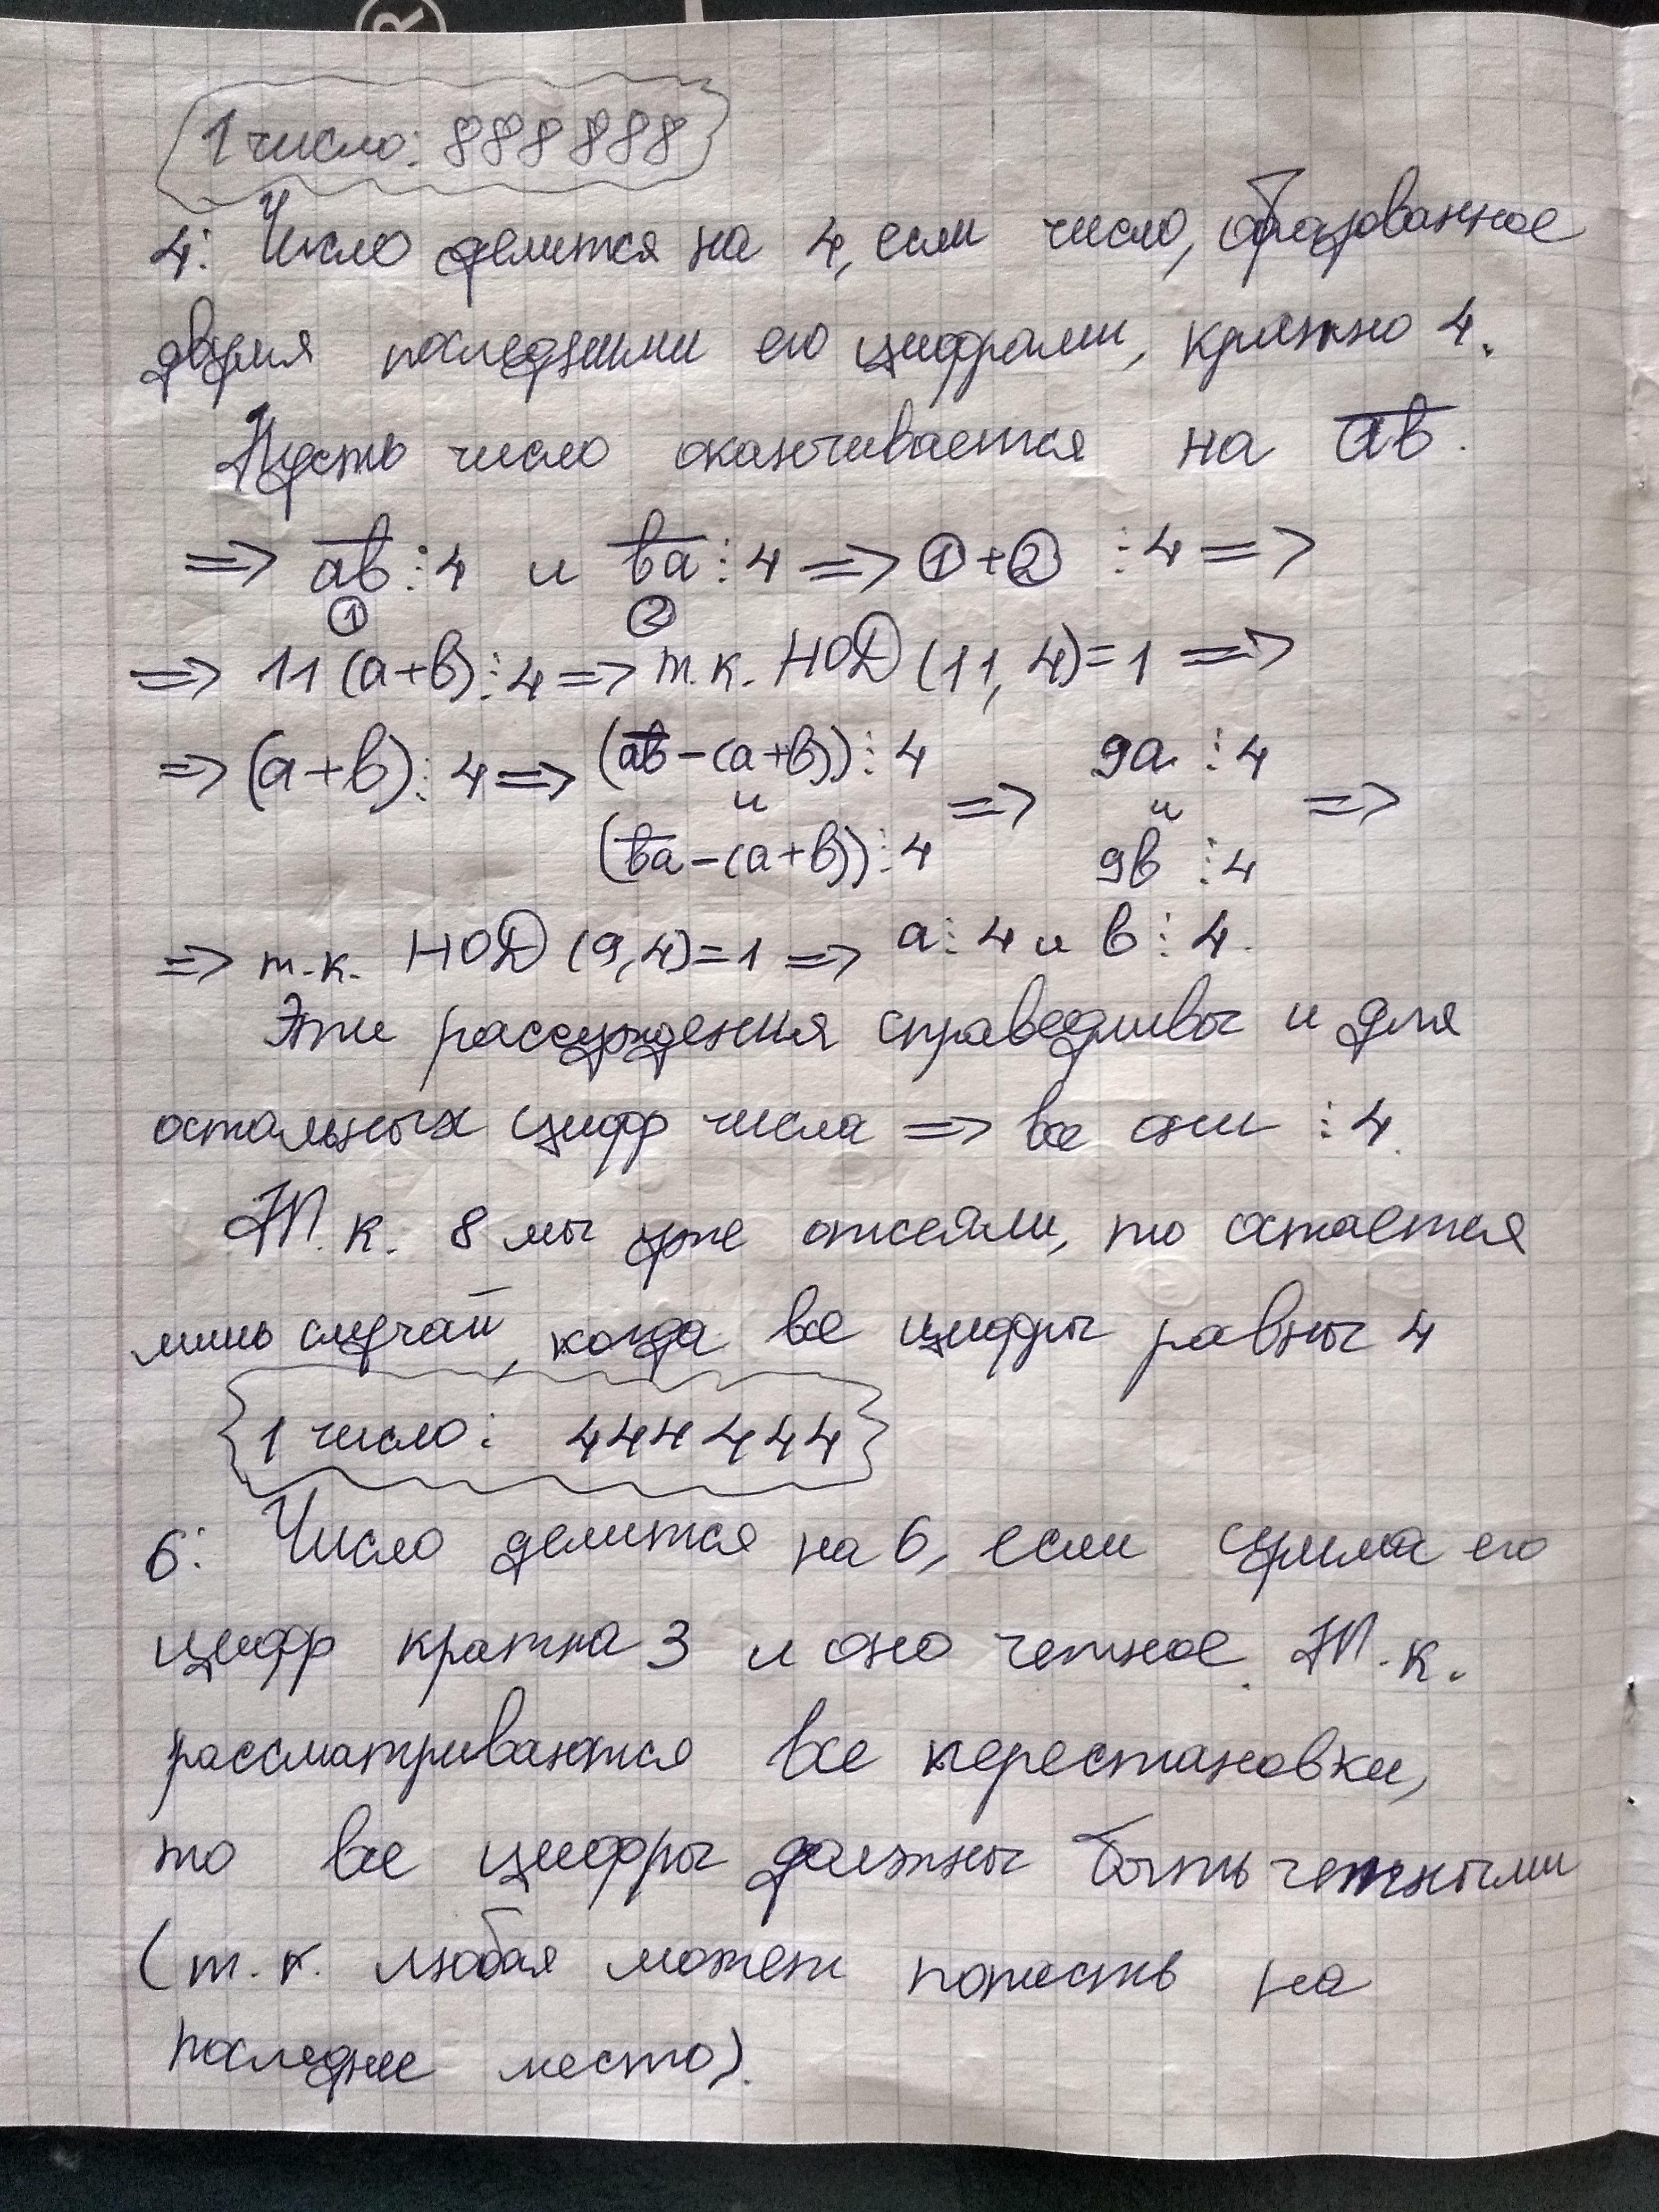 ®
1 число: 888888
4: Число делится на 4, если число, образованное
двумя последними его цифрами, кратно 4.
Пусть число оканчивается на ab.
=> ab ⋮ 4 и ba ⋮ 4 => ① + ② ⋮ 4 =>
① ②
=> 11 (a+b) ⋮ 4 => т.к. НОД (11, 4) = 1 =>
=> (a+b) ⋮ 4 => (ab - (a+b)) ⋮ 4 и (ba - (a+b)) ⋮ 4 => 9a ⋮ 4 и 9b ⋮ 4 =>
=> т.к. НОД (9, 4) = 1 => a ⋮ 4 и b ⋮ 4.
Эти рассуждения справедливы и для
остальных цифр числа => все они ⋮ 4.
Т.к. 8 мы уже отсеяли, то остается
лишь случай, когда все цифры равны 4
1 число: 444444
6: Число делится на 6, если сумма его
цифр кратна 3 и оно четное. Т.к.
рассматриваются все перестановки,
то все цифры должны быть четными
(т.к. любая может попасть на
последнее место).